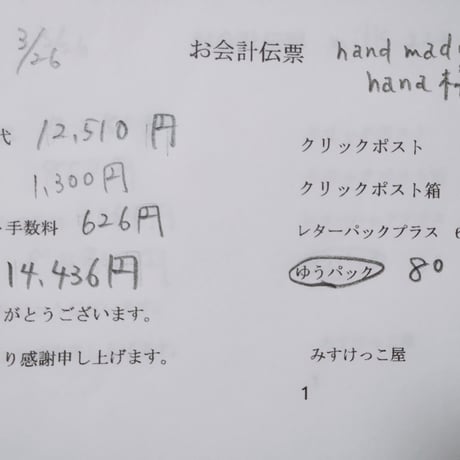 3/26
お会計伝票
hand mad
hana 様
代 12,510円
1,300円
手数料 626円
14,436円
がとうございます。
り感謝申し上げます。
クリックポスト
クリックポスト箱
レターパックプラス 6
ゆうパック 80
みすけっこ屋
1